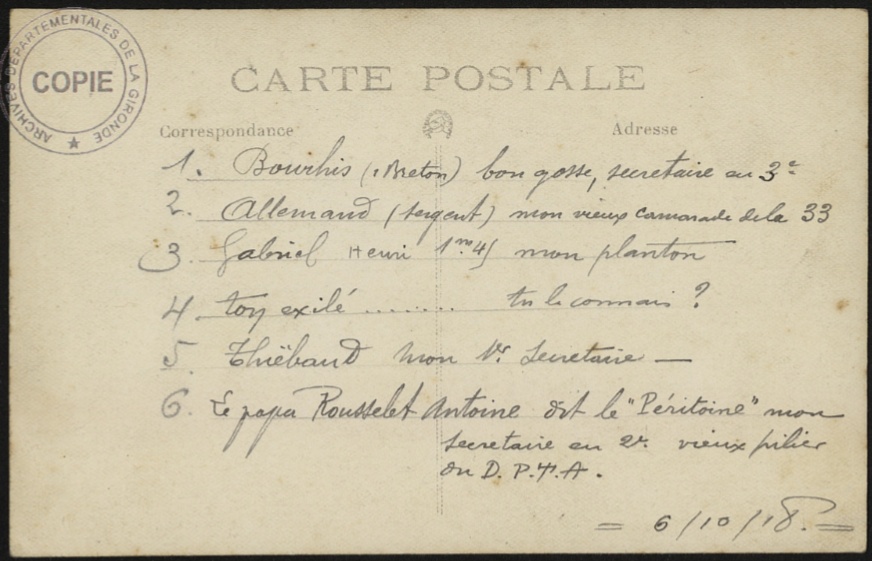 ARCHIVES DEPARTEMENTALES DE LA GIRONDE
COPIE
CARTE POSTALE
Correspondance
Adresse
1. Bourhis (1 Breton) bon gosse, secretaire au 3e
2. Allemand (sergent) mon vieux camarade de la 33
3. Gabriel Henri 1m45 mon planton
4. ton exilé ........ tu le connais ?
5. Thiébaud mon 1er Secretaire —
6. Le papa Rousselet Antoine dit le "Péritoine" mon
secretaire en 2e vieux pilier
du D.P.T.A.
= 6/10/18. =